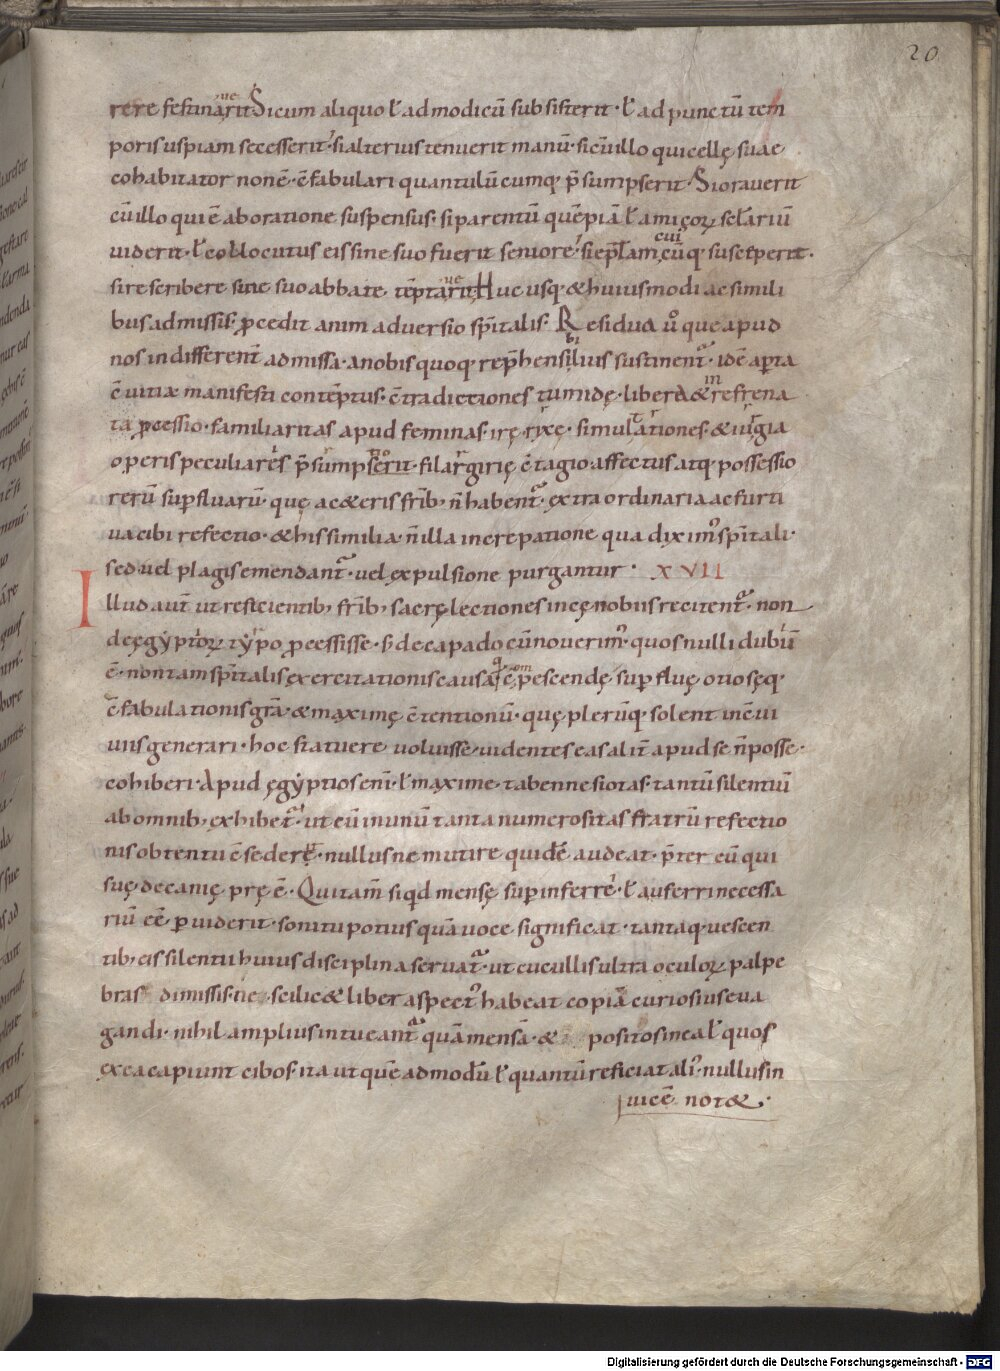 20
rere festinarit ue Si cum aliquo ł ad modicū subsisterit · ł ad punctū tem
poris uspiam secesserit · si alterius tenuerit manū · si cū illo qui cellę suae
cohabitator non ē · cfabulari quantulūcumq; p̄sumpserit · Si orauerit
cū illo qui ē ab oratione suspensus · si parentū quēpiā ł amicoꝝ sclariū
uiderit · ł collocutus eis sine suo fuerit seniore · si ep̄łam cuiuscūq; susceperit ·
si rescribere sine suo abbate tēptarit ue Huc usq; & huiusmodi ac simili
bus admissis · pcedit animaduersio sp̄italis · Residua ū que apud
nos indifferent̄ admissa · a nobis quoq; rep̄hensibilius sustinent̄ · id ē apta
cuitia · manifesti contēptus · cradictiones tumidę · libera & infrena
ta pcessio · familiaritas apud feminas · irę · rixę · simultationes & iurgia
operis peculiaris p̄sumptio · filargirię ctagio · affectus atq; possessio
rerū supfluarū · quę a ceteris frīb; n̄ habent̄ · extraordinaria ac furti
ua cibi refectio · & his similia · n̄ illa increpatione qua diximꝰ sp̄itali ·
sed uel plagis emendant̄ · uel expulsione purgantur · XVII
Illud aut̄ ut reficientib; frīb; sacrę lectiones in cęnobiis recitent̄ · non
de ęgyptioꝝ typo pcessisse · s; de capadocū nouerimꝰ · quos nulli dubiū
ē · non tam sp̄italis exercitationis causa q̄ cōpescendę supfluę otiosęq;
cfabulationis gr̄a · & maximę ctentionū · quę plerūq; solent in cui
uiis generari · hoc statuere uoluisse · uidentes eas alit̄ apud se n̄ posse ·
cohiberi · Apud ęgyptios enī · ł maxime tabennesiotas · tantū silentiū
ab omnib; exhibet̄ · ut cū in unū tanta numerositas fratrū refectio
nis obtentu csederit · nullus ne mutire quidē audeat · p̄ter eū qui
suę decanię pręē · Qui tam̄ si qd mensę supinferri · ł auferri necessa
riū ēē puiderit · sonitu potius quā uoce significat · tantaq; uescen
tib; eis silentii huius disciplina seruat̄ · ut cucullis ultra oculoꝝ palpe
bras dimissis · ne scilic& liber aspectꝰ habeat copiā curiosius eua
gandi · nihil amplius intueant̄ quā mensā · & positos in ea ł quos
ex ea capiunt cibos · ita ut quēadmodū ł quantū reficiat aliꝰ · nullus in
uicē not& ·
Digitalisierung gefördert durch die Deutsche Forschungsgemeinschaft - DFG